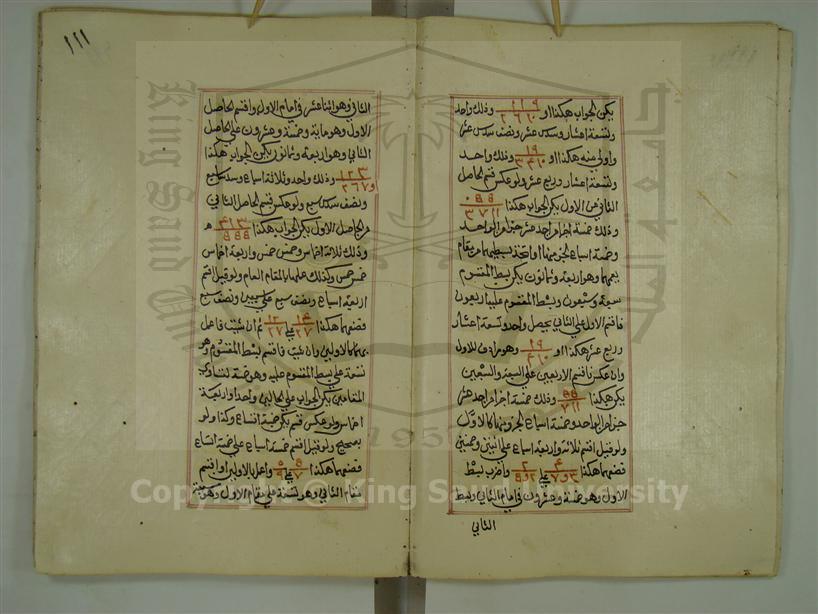 يكن الجواب هكذا او وذلك واحد
وتسعة اعشار وسدس عشر ونصف سدس عشر
واولى منه هكذا او وذلك واحد
وتسعة اعشار وربع عشر ولو عكس قسم الحاصل
الثاني على الاول يكن الجواب هكذا
وذلك خمسة اجزاء من احد عشر جزءا من الواحد
وخمسة اسباع الجزء منها او اتخذ بسطيهما من مقام
يعمهما وهو اربعة وثمانون يكن بسط المقسوم
سبعة وسبعون وبسط المقسوم عليه اربعون
فاقسم الاول على الثاني يحصل واحد وتسعة اعشار
وربع عشر هكذا او وهو مرادف للاول
وان عكس فاقسم الاربعين على السبعة والسبعين
يكن هكذا وذلك خمسة اجزاء من احد عشر
جزءا من الواحد وخمسة اسباع الجزء منها كالاول
ولو قيل اقسم ثلاثة واربعة اسباع على اثنين وخمسين
فضعهما هكذا على واضرب بسط
الاول وهو خمسة وعشرون في امام الثاني وبسط
الثاني
١١١
الثاني وهو اثنا عشر في امام الاول واقسم الحاصل
الاول وهو ماية وخمسة وعشرون على الحاصل
الثاني وهو اربعة وثمانون يكن الجواب هكذا
وذلك واحد وثلاثة اسباع وسدس سبع
ونصف سدس سبع ولو عكس قسم الحاصل الثاني
على الحاصل الاول يكن الجواب هكذا
وذلك ثلاثة اخماس وخمس خمس واربعة اخماس
خمس خمس وكذلك عملهما بالمقام العام ولو قيل اقسم
اربعة اسباع ونصف سبع على سبعين ونصف سبع
فضعهما هكذا على ثم ان شئت فاعمل
بهما كالاولين وان شئت فاقسم بسط المقسوم وهو
تسعة على بسط المقسوم عليه وهو خمسة لتساوي
المقامين يكن الجواب على الحالين واحدا واربعة
اخماس ولو عكس قسم يكن خمسة اتساع وكذا ولو
بصحيح ولو قيل اقسم خمسة اسباع على خمسة اتساع
فضعهما هكذا على واعمل كالاولين او اقسم
مقام الثاني وهو تسعة على مقام الاول وهو سبعة
Copyright © King Saud University
King Saud
1957